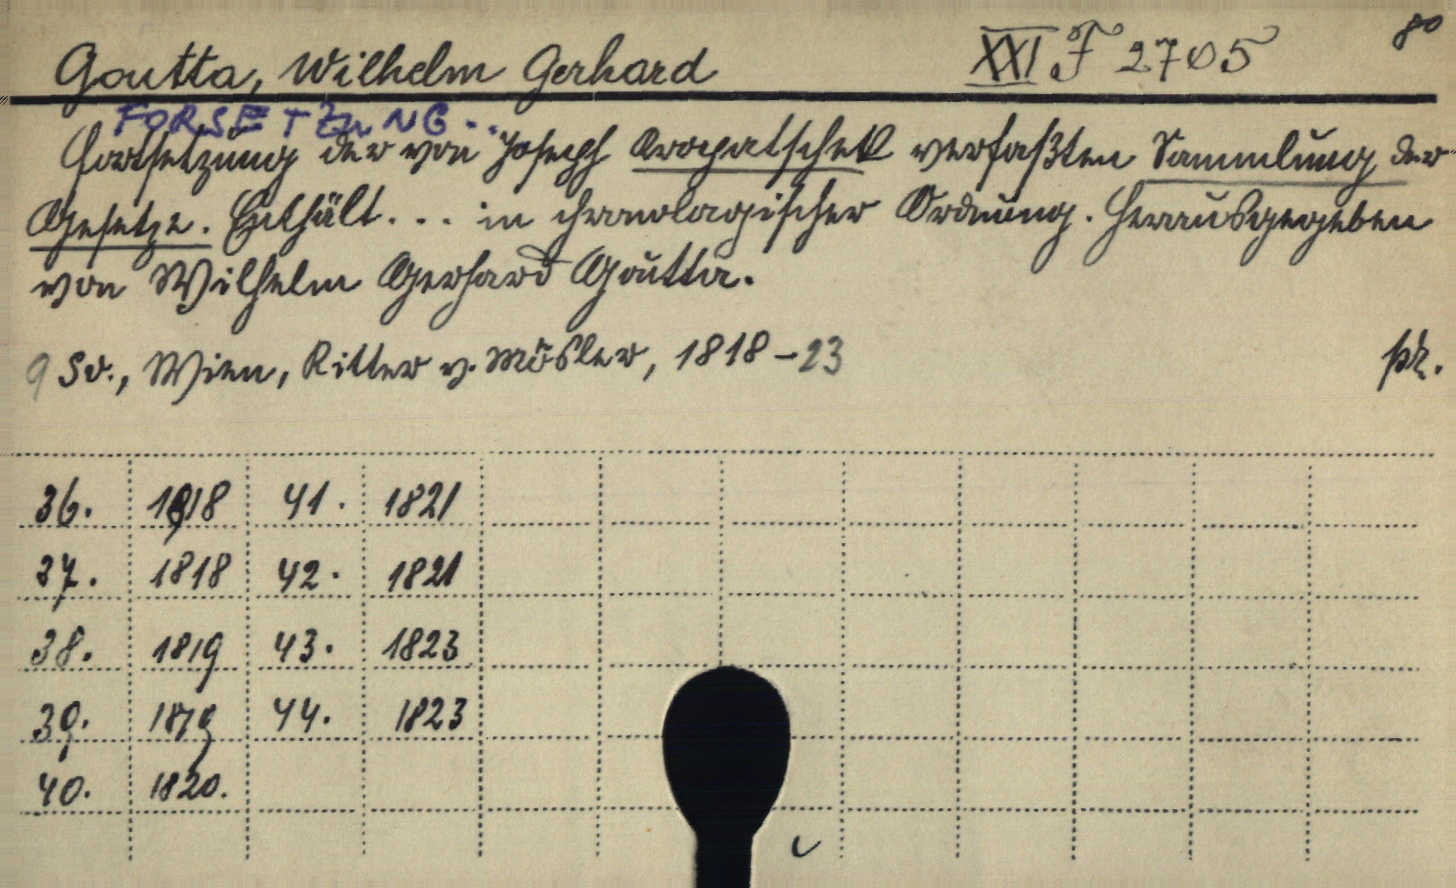 Goutta, Wilhelm Gerhard XXI F 2705 8o
FORSETZuNG..
Fortsetzung der von Joseph Kropatschek verfaßten Sammlung der
Gesetze. Enthält... in chronologischer Ordnung. Herausgegeben
von Wilhelm Gerhard Goutta.
9 Bd., Wien, Ritter v. Mösler, 1818-23
36. 1818 41. 1821
37. 1818 42. 1821
38. 1819 43. 1823
39. 1819 44. 1823
40. 1820.